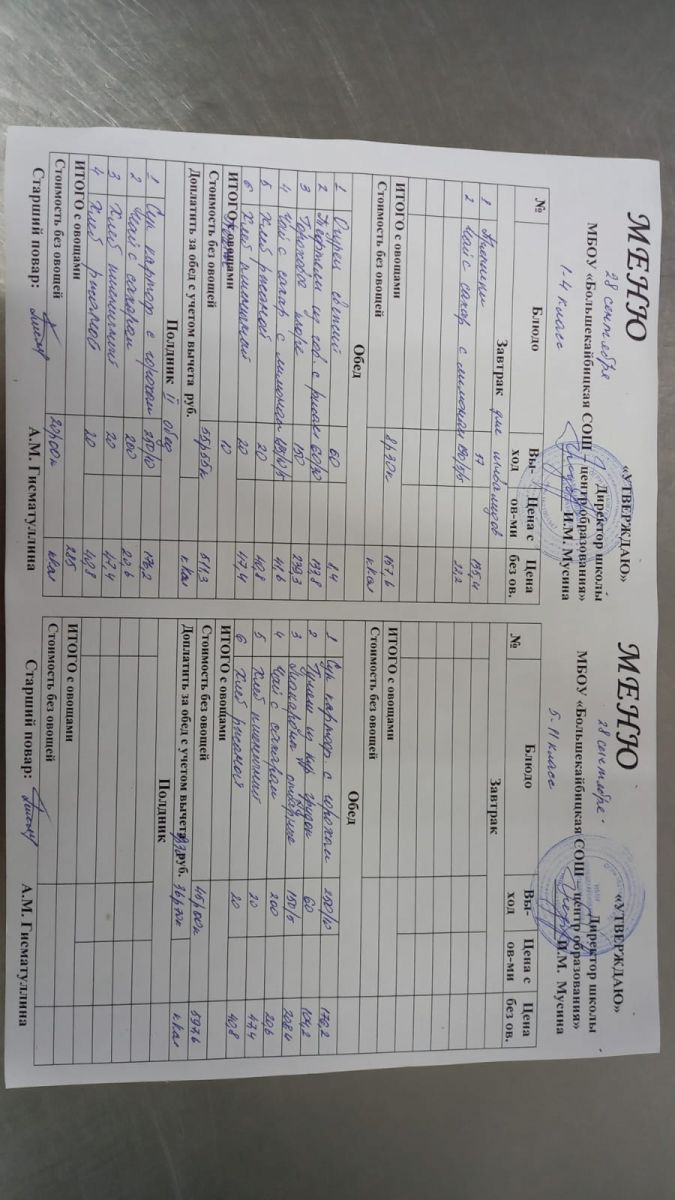 МЕНЮ
28 сентября
«УТВЕРЖДАЮ»
Директор школы
МБОУ «Большекайбицкая СОШ – центр образования»
И.М. Мусина
1-4 класс
№ Блюдо Вы-ход Цена с ов-ми Цена без ов.
Завтрак для инвалидов
1 57 135,4
2 Чай с сахар с лимоном 22,2
ИТОГО с овощами 8р30к 157,6
Стоимость без овощей ккал
Обед
1 Огурец свежий 60 1,4
2 с рисом 60/30
3 Гороховое пюре 150 239,3
4 Чай с сахар с лимоном 41,6
5 Хлеб ржаной 20 40,8
6 Хлеб пшеничный 20 47,4
ИТОГО с овощами 10
Стоимость без овощей 55р55к 511,3
Доплатить за обед с учетом вычета руб. ккал
Полдник II обед
1 Суп картоф с горохом 250/10 176,2
2 Чай с сахаром 200 20,6
3 Хлеб пшеничный 20 47,4
4 Хлеб ржаной 20 40,8
ИТОГО с овощами 285
Стоимость без овощей 20р00к ккал
Старший повар: А.М. Гисматуллина
МЕНЮ
28 сентября.
«УТВЕРЖДАЮ»
Директор школы
МБОУ «Большекайбицкая СОШ – центр образования»
И.М. Мусина
5-11 класс
№ Блюдо Вы-ход Цена с ов-ми Цена без ов.
Завтрак
ИТОГО с овощами
Стоимость без овощей
Обед
1 Суп картоф с горохом 250/10 176,2
2 Гуляш из кур грудок 60 104,2
3 Макароны отварные 150/5 208,4
4 Чай с сахаром 200 20,6
5 Хлеб пшеничный 20 47,4
6 Хлеб ржаной 20 40,8
ИТОГО с овощами
Стоимость без овощей 45р00к 597,6
Доплатить за обед с учетом вычета руб. ккал
Полдник
ИТОГО с овощами
Стоимость без овощей
Старший повар: А.М. Гисматуллина